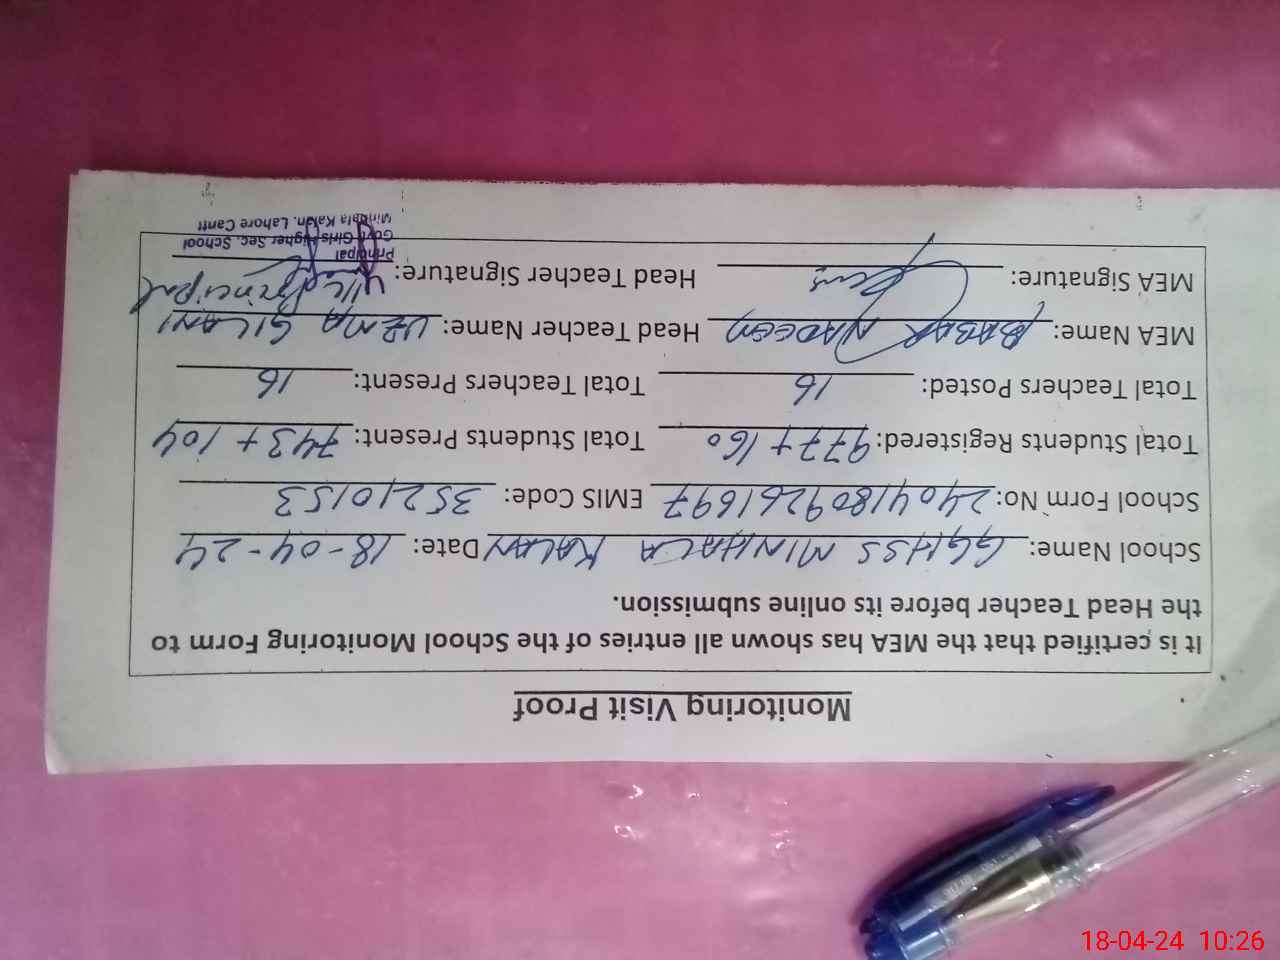 Monitoring Visit Proof
It is certified that the MEA has shown all entries of the School Monitoring Form to
the Head Teacher before its online submission.
School Name: GGHSS MINHALA KALAN Date: 18-04-24
School Form No: 24041809261697 EMIS Code: 35210153
Total Students Registered: 977+160 Total Students Present: 743+104
Total Teachers Posted: 16 Total Teachers Present: 16
MEA Name: BABAR NADEEM Head Teacher Name: UZMA GILANI
MEA Signature: Head Teacher Signature: Principal
Principal
Govt Girls Higher Sec. School
Minhala Kalan, Lahore Cantt
18-04-24 10:26